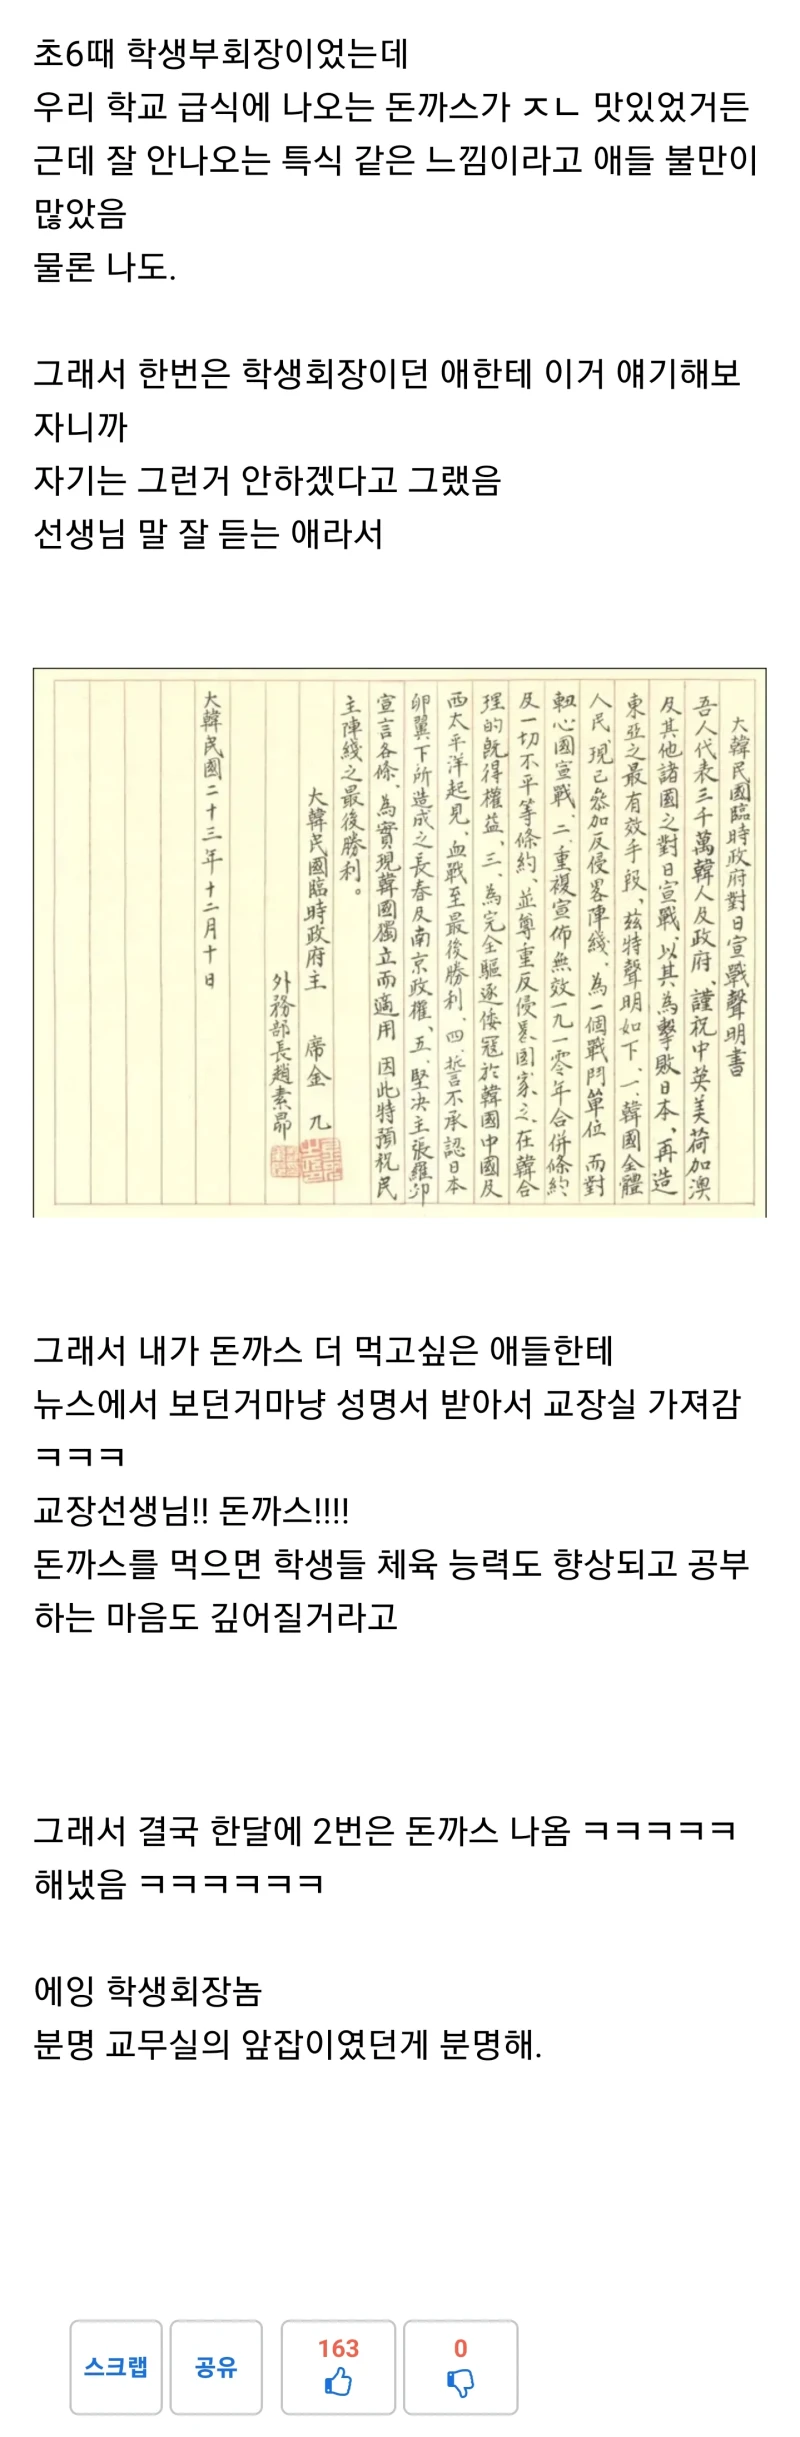 초6때 학생부회장이었는데
우리 학교 급식에 나오는 돈까스가 ㅈㄴ 맛있었거든
근데 잘 안나오는 특식 같은 느낌이라고 애들 불만이
많았음
물론 나도.
그래서 한번은 학생회장이던 애한테 이거 얘기해보
자니까
자기는 그런거 안하겠다고 그랬음
선생님 말 잘 듣는 애라서
大韓民國臨時政府對日宣戰聲明書
吾人代表三千萬韓人及政府、謹祝中英美荷加澳
及其他諸國之對日宣戰、以其為擊敗日本、再造
東亞之最有效手段、玆特聲明如下、一、韓國全體
人民、現已參加反侵畧陣綫、為一個戰鬥單位、而對
軸心國宣戰、二、重複宣佈無效一九一零年合併條約
及一切不平等條約、並尊重反侵畧國家之、在韓合
理的旣得權益、三、為完全驅逐倭寇於韓國中國及
西太平洋起見、血戰至最後勝利、四、誓不承認日本
卵翼下所造成之長春及南京政權、五、堅決主張羅邱
宣言各條、為實現韓國獨立而適用、因此特預祝民
主陣綫之最後勝利。
大韓民國臨時政府主席金九
外務部長趙素昻
大韓民國二十三年十二月十日
그래서 내가 돈까스 더 먹고싶은 애들한테
뉴스에서 보던거마냥 성명서 받아서 교장실 가져감
ㅋㅋㅋ
교장선생님!! 돈까스!!!!
돈까스를 먹으면 학생들 체육 능력도 향상되고 공부
하는 마음도 깊어질거라고
그래서 결국 한달에 2번은 돈까스 나옴 ㅋㅋㅋㅋㅋ
해냈음 ㅋㅋㅋㅋㅋㅋ
에잉 학생회장놈
분명 교무실의 앞잡이였던게 분명해.
스크랩 공유 163 0